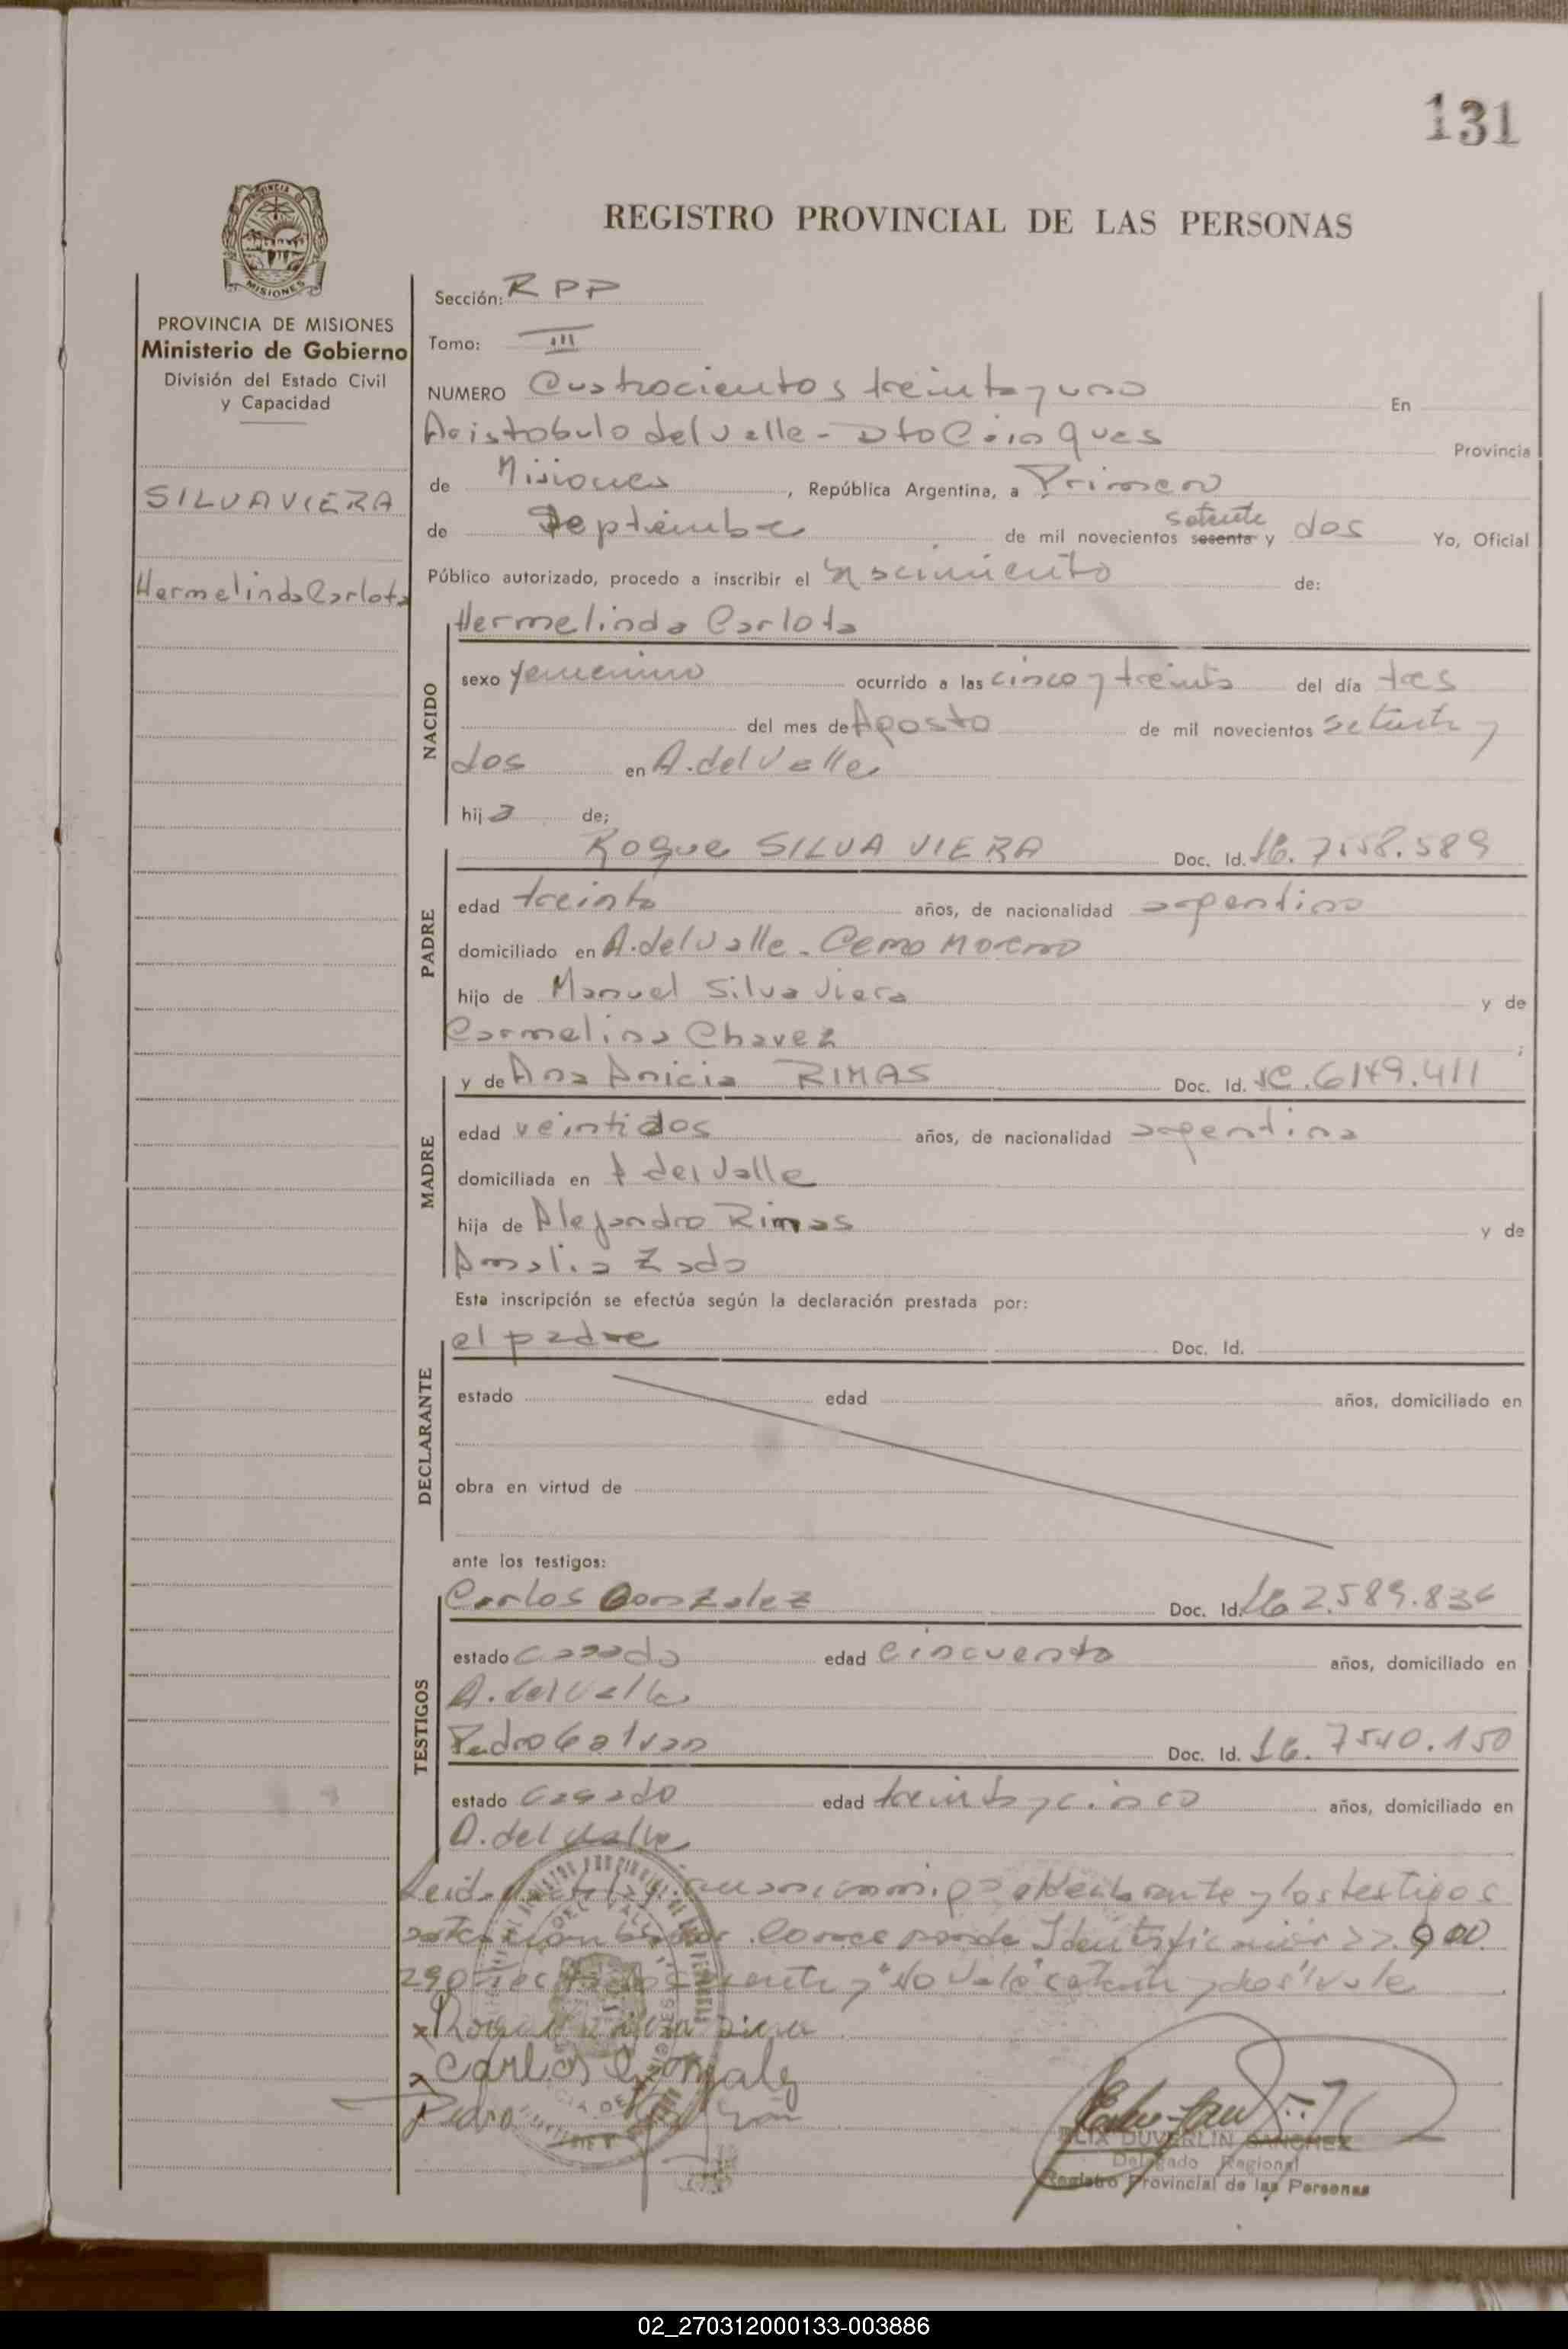 131
PROVINCIA DE
MISIONES
REGISTRO PROVINCIAL DE LAS PERSONAS
PROVINCIA DE MISIONES
Ministerio de Gobierno
División del Estado Civil
y Capacidad
SILVA VIERA
Hermelinda Carlota
Sección: RPP
Tomo: III
NUMERO Cuatrocientos treinta y uno En
Aristobulo del Valle - Dto Cainques Provincia
de Misiones, República Argentina, a Primero
de Septiembre de mil novecientos sesenta setenta y dos Yo, Oficial
Público autorizado, procedo a inscribir el nacimiento de:
Hermelinda Carlota
NACIDO
sexo femenino ocurrido a las cinco y treinta del día tres
del mes de Agosto de mil novecientos setenta y
dos en A. del Valle
hija de;
PADRE
Roque SILVA VIERA Doc. Id. 7.558.589
edad treinta años, de nacionalidad argentino
domiciliado en A. del Valle - Cerro Moreno
hijo de Manuel Silva Viera y de
Carmelina Chavez ;
MADRE
y de Ana Anicia RIMAS Doc. Id. 6149.411
edad veintidos años, de nacionalidad argentina
domiciliada en A del Valle
hija de Alejandro Rimas y de
Amalia Zado
Esta inscripción se efectúa según la declaración prestada por:
DECLARANTE
el padre Doc. Id.
estado edad años, domiciliado en
obra en virtud de
ante los testigos:
TESTIGOS
Carlos Gonzalez Doc. Id. 2.589.836
estado casado edad cincuenta años, domiciliado en
A. del Valle
Pedro Galvan Doc. Id. 7540.150
estado casado edad treinta y cinco años, domiciliado en
A. del Valle
Leida el declarante y los testigos
Corresponde Identificación 22.900
290 "No vale" setenta y dos "vale
x Roque Silva Viera
x Carlos Gonzalez
Pedro Galván
FELIX DUVERLIN SANCHEZ
Delegado Regional
Registro Provincial de las Personas
02_270312000133-003886